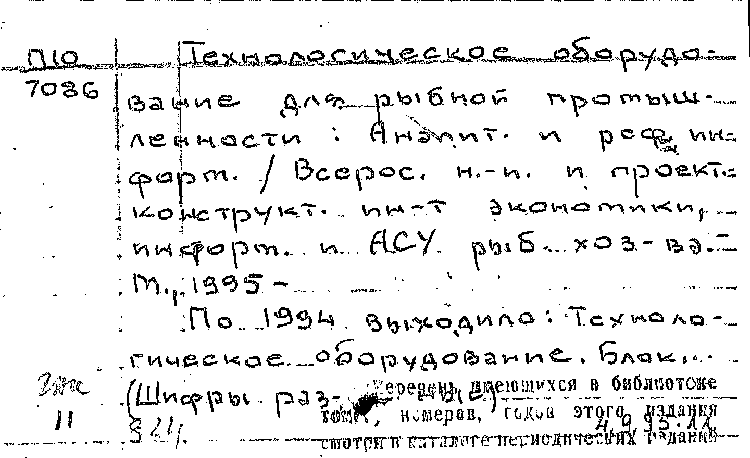 П10 Технологическое оборудо-
7086 вание для рыбной промыш-
ленности : Аналит. и реф. ин-
форм. / Всерос. н.-и. и проект.-
конструкт. ин-т экономики,
информ. и АСУ рыб. хоз-ва. -
М., 1995 -
По 1994 выходило: Техноло-
гическое оборудование. Блок...
(Шифры раз-ные)
11
Перечень имеющихся в библиотеке
томов, номеров, годов этого издания
смотри в каталоге периодических изданий
4.9.95